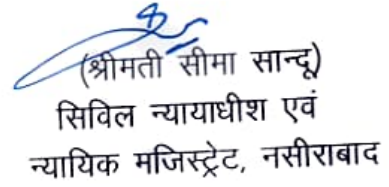 (श्रीमती सीमा सान्दू)
सिविल न्यायाधीश एवं
न्यायिक मजिस्ट्रेट, नसीराबाद